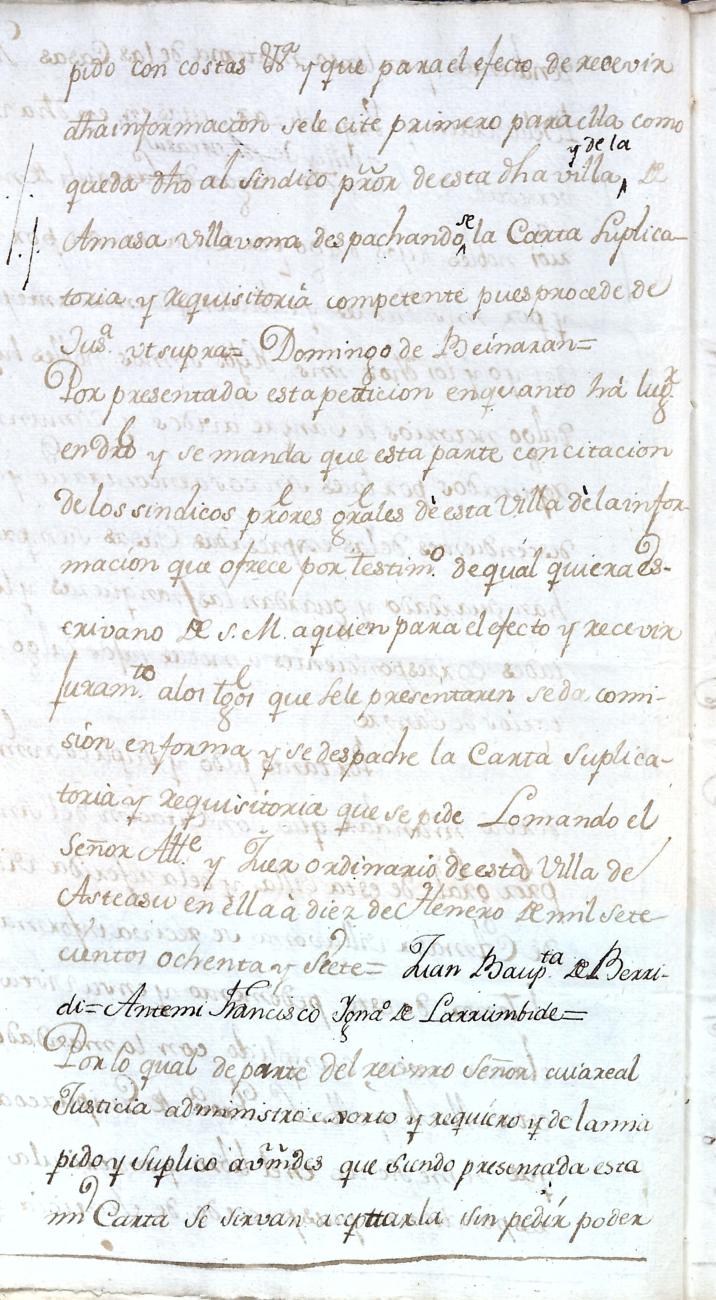 pido con costas &ª y que para el efecto de recevir
dha informacion se le cite primero para ella como
y de la
queda dho al sindico pror de esta dha villa, De
se
Amasa villavona despachando la Carta suplica-
toria y requisitoria competente pues procede de
Jusª. vt supra= Domingo de Beinaran=
Por presentada esta petticion en quanto há lugr.
en dro y se manda que esta parte con citacion
de los sindicos prores grales dè esta Villa dè la infor-
mación que ofrece por testimº. de qual quiera Es-
crivano De S. M. a quien para el efecto y recevir
Juramto. a los tgos que se le presentaren se da comi-
sión en forma y se despache la Carta Suplica-
toria y requisitoria que se pide Lo mando el
Señor Alle y Juez ordinario de esta Villa de
Asteasu en èlla à diez de Henero De mil sete-
cientos ochenta y Siete= Juan Baupta. De Berri-
di= Ante mi Francisco Ignº. De Larrumbide=
Por lo qual de parte del rei nro Señor cuia real
Justicia administro exorto y requiero y de la mia
pido y suplico a vmdes que siendo presentada esta
mi Carta se sirvan acepttarla sin pedir poder